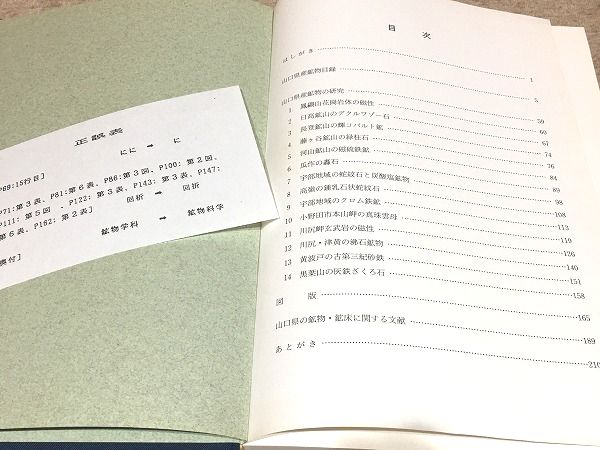 正誤表
P69:15行目] にに ➡ に
P71: 第3表、P81: 第6表、P86: 第3図、P100: 第2図、
P111: 第5図 、P122: 第3表、P143: 第3表、P147:
第6表、P162: 第2表] 回析 ➡ 回折
奥付] 鉱物学科 ➡ 鉱物科学
目次
はしがき 1
山口県産鉱物目録 5
山口県産鉱物の研究
1 鳳翩山花崗岩体の磁性 59
2 日高鉱山のデクルワゾー石 60
3 長登鉱山の輝コバルト鉱 67
4 藤ヶ谷鉱山の緑柱石 74
5 河山鉱山の磁硫鉄鉱 76
6 瓜作の轟石 84
7 宇部地域の蛇紋石と炭酸塩鉱物 89
8 高嶺の鍾乳石状蛇紋石 94
9 宇部地域のクロム鉄鉱 98
10 小野田市本山岬の真珠雲母 108
11 川尻岬玄武岩の磁性 113
12 川尻・津黄の沸石鉱物 119
13 黄波戸の古第三紀砂鉄 126
14 黒葉山の灰鉄ざくろ石 140
151
図版 158
山口県の鉱物・鉱床に関する文献 165
あとがき 189
210